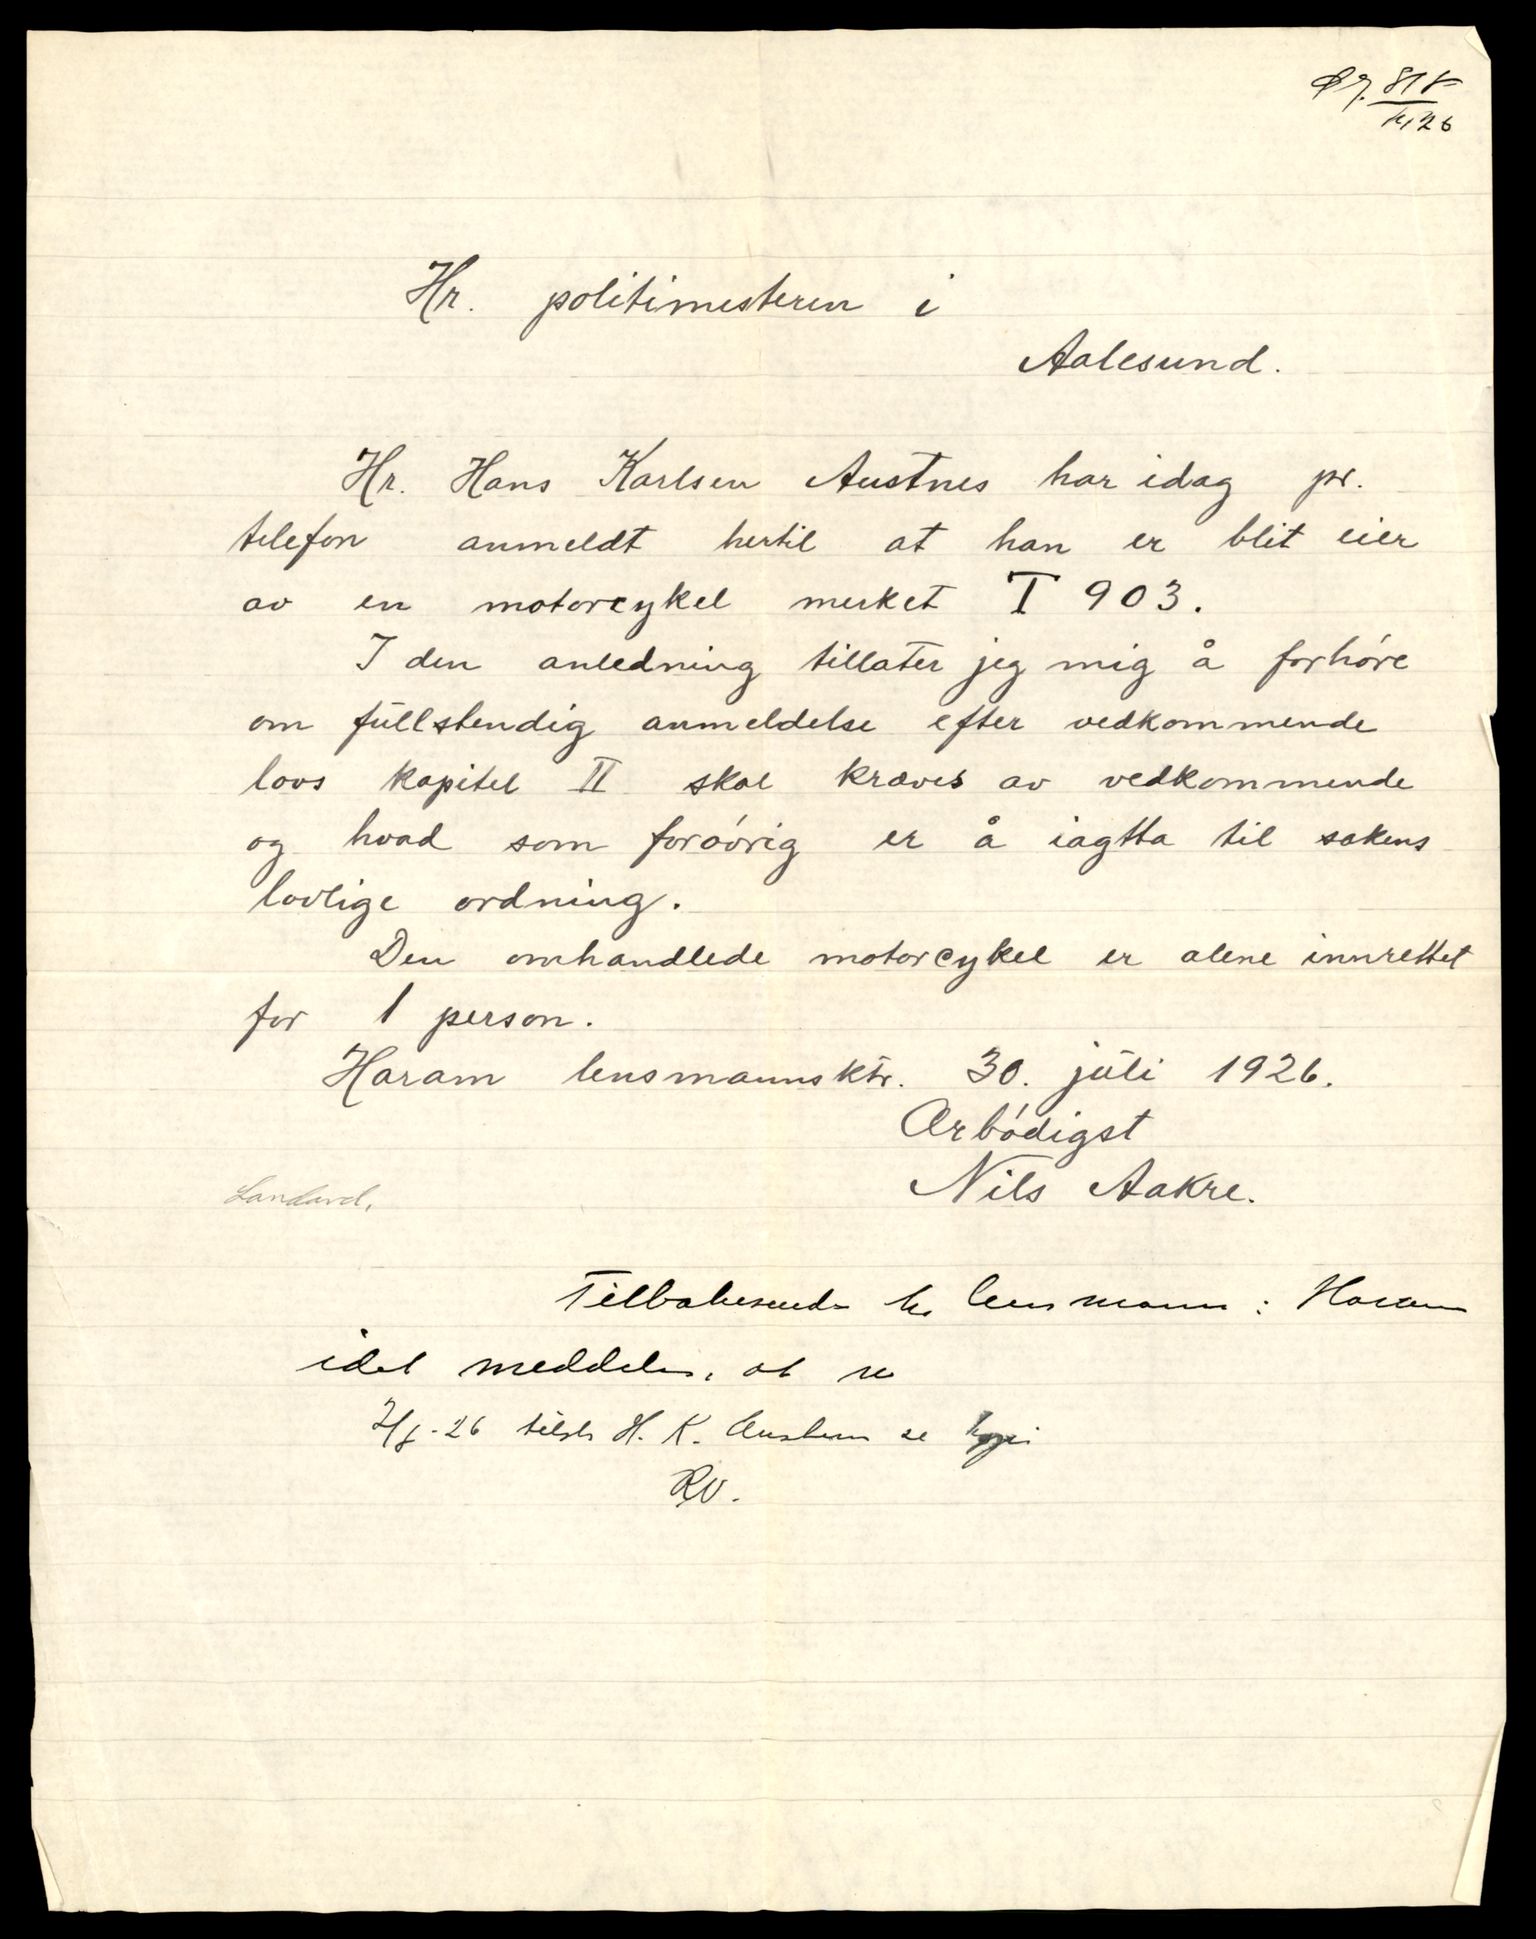 818
26
Hr. politimesteren i
Aalesund.
Hr. Hans Karlsen Austnes har idag pr.
telefon anmeldt hertil at han er blit eier
av en motorcykel merket T 903.
I den anledning tillater jeg mig å forhóre
om fullstendig anmeldelse efter vedkommende
lovs kapitel II skal kræves av vedkommende
og hvad som foróvrig er å iagtta til sakens
lovlige ordning.
Den omhandlede motorcykel er alene innrettet
for 1 person.
Haram lensmannsktr. 30. juli 1926.
Ærbódigst
Nils Aakre.
Landavd.
Tilbakesendes hr lensmannen i Haram
idet meddeles, at
26 H. K. Austnes se kopi
RV.